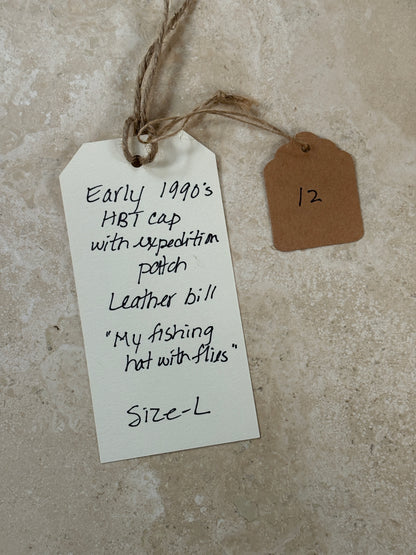 Early 1990's
HBT cap
with expedition
patch
Leather bill
"My fishing
hat with flies"
Size-L
12